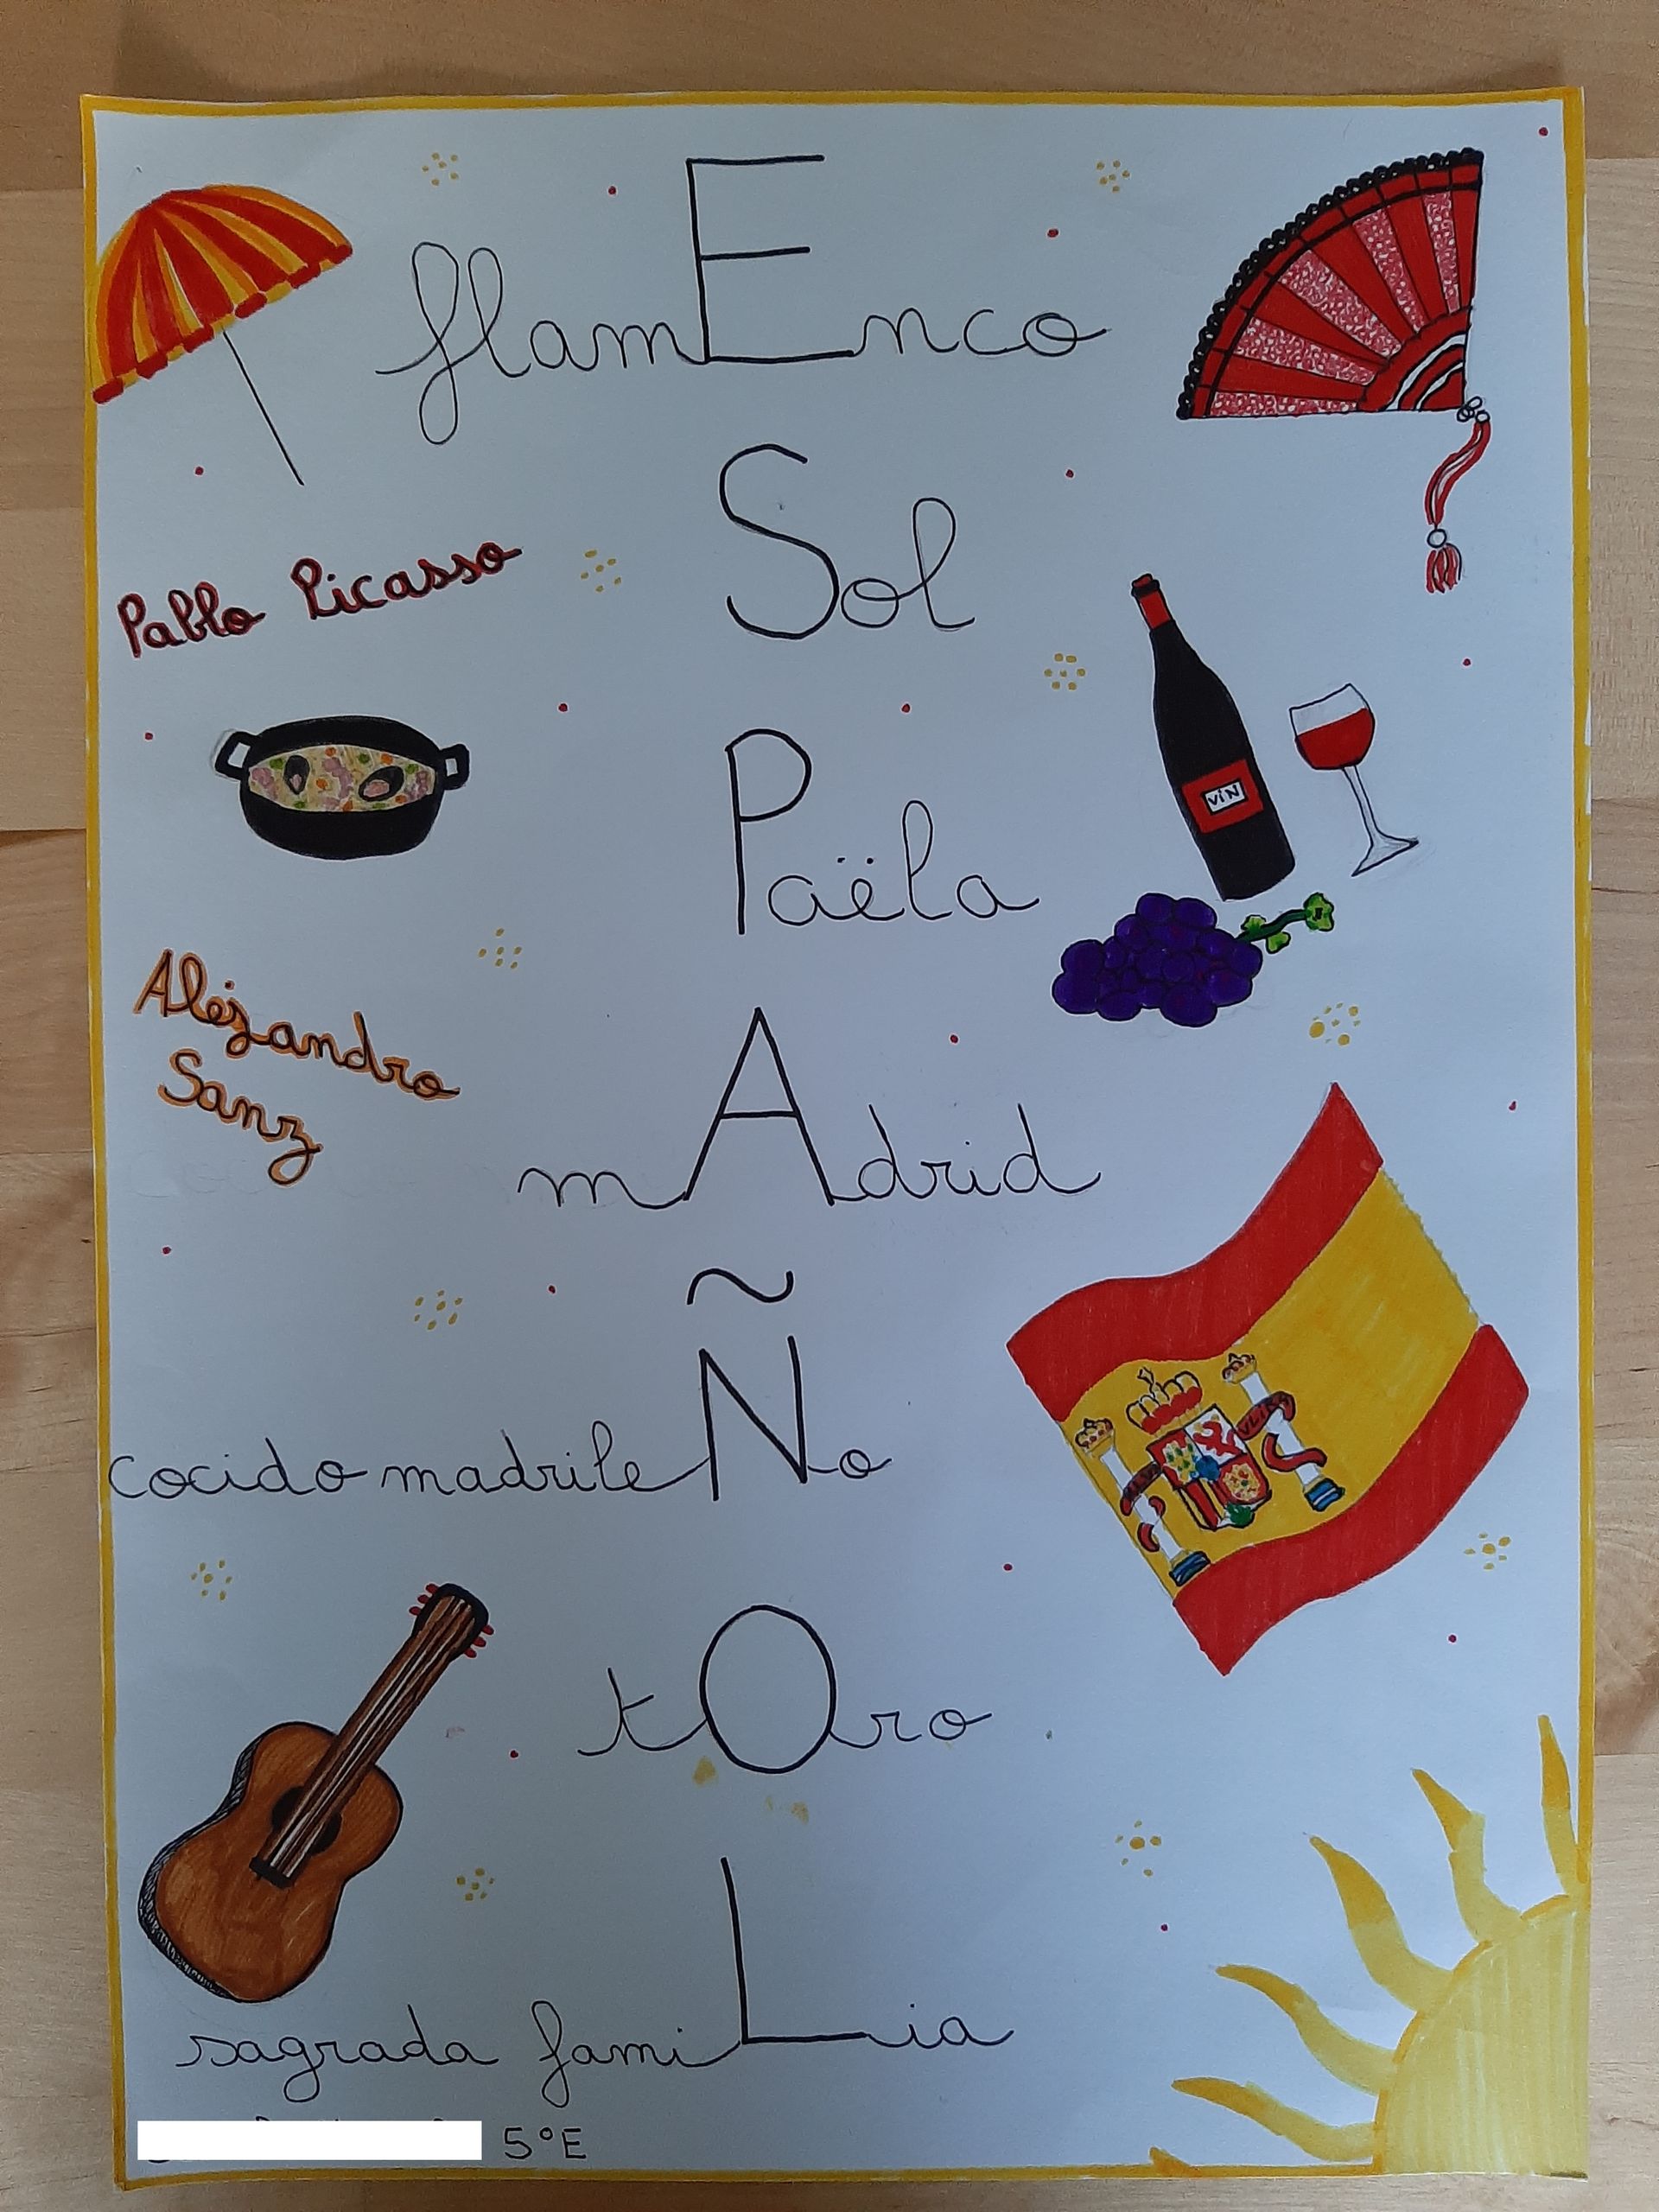 flamEnco
Sol
Pablo Picasso
Paëla
VIN
Alejandro
Sanz
mAdrid
cocido madrileÑo
tOro
sagrada famiLia
5°E